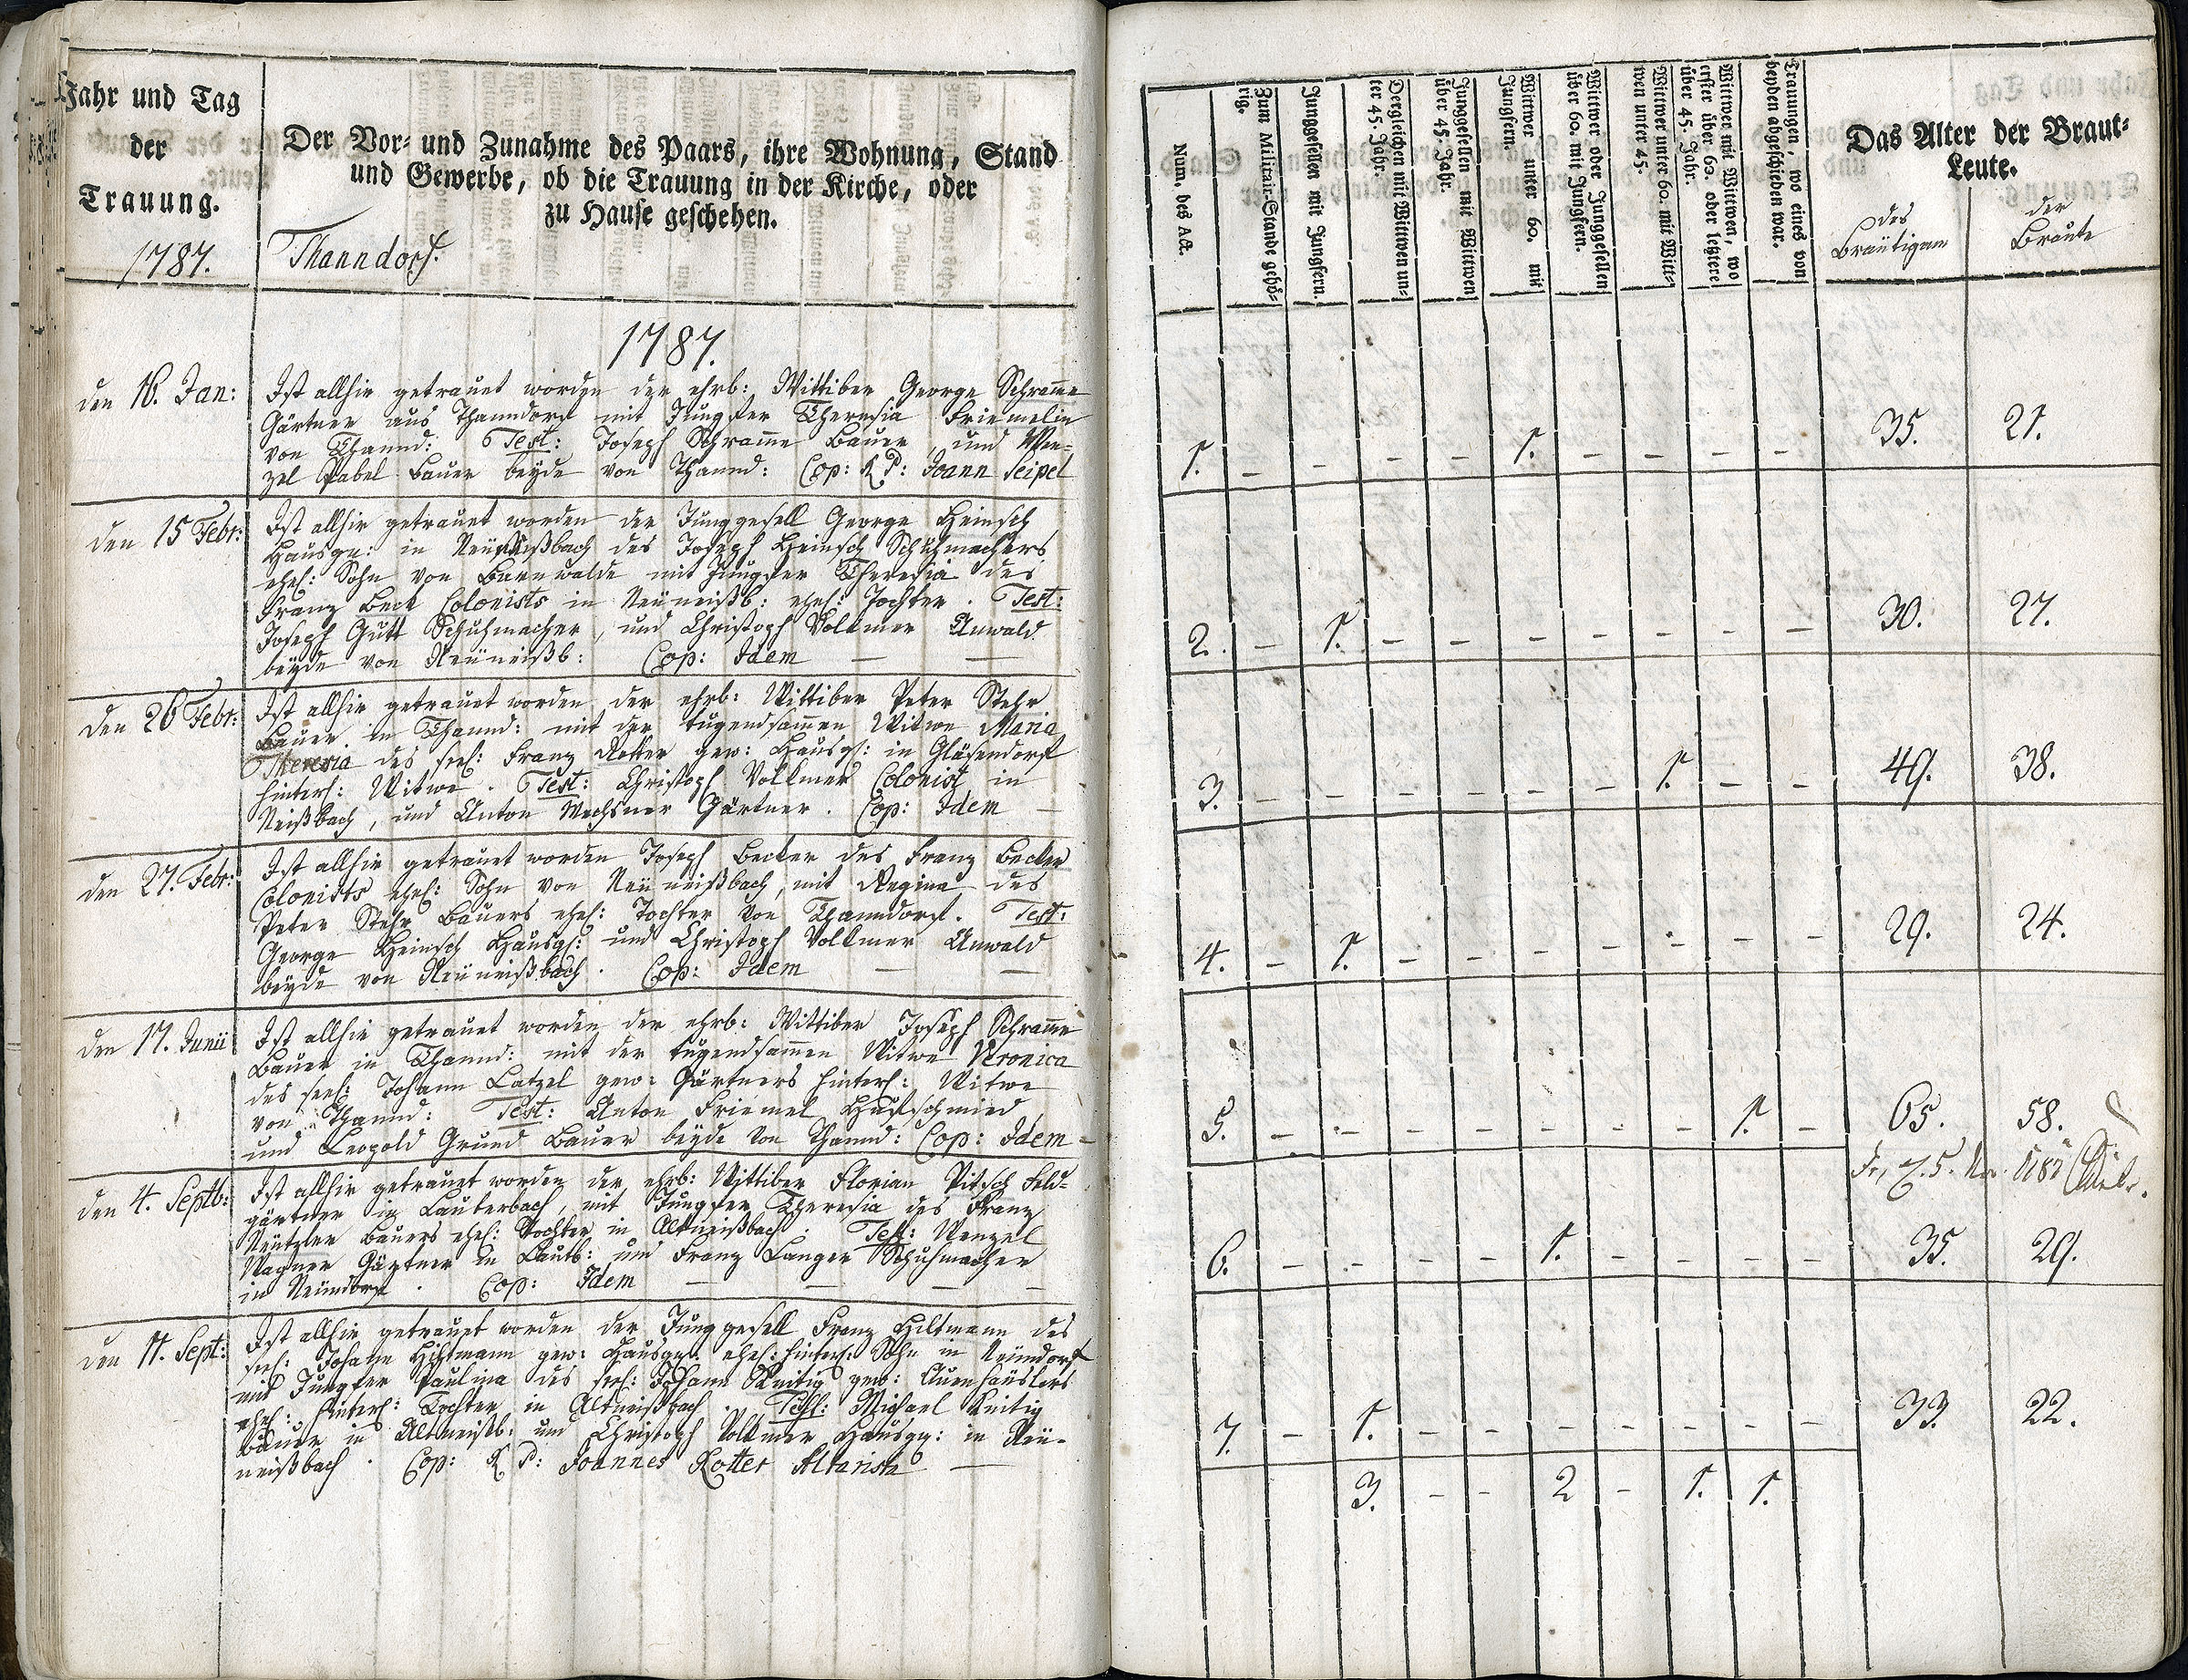 Jahr und Tag
der
Trauung.
1787.
Der Vor- und Zunahme des Paars, ihre Wohnung, Stand
und Gewerbe, ob die Trauung in der Kirche, oder
zu Hause geschehen.
Thanndorf.
1787.
den 16. Jan:
Ist allhir getrauet worden der ehrb: Wittiber George Schram̄e
Gärtner aus Thanndorf mit Jungfer Theresia Friemelin
von Thannd: Test: Joseph Schram̄e Bauer, und Wen-
zel Pabel Bauer beyde von Thannd: Cop: R. P: Joann Seipel
den 15 Febr:
Ist allhir getrauet worden der Junggesell George Heinsch
Hausgn: in Neüneißbach des Joseph Heinsch Schuhmachers
ehel: Sohn von Bernwalde mit Jungfer Theresia des
Franz Beck Colonists in Neüneißb: ehel: Tochter. Test:
Joseph Gutt Schuhmacher, und Christoph Vollmer Anwald
beyde von Neüneißb: Cop: Idem — —
den 26 Febr:
Ist allhir getrauet worden der ehrb: Wittiber Peter Stehr
Bauer in Thannd: mit der tugendsam̄en Witwe Maria
Theresia des seel: Franz Rotter gew: Hausgl: in Gläsendorf
hinterl: Witwe. Test: Christoph Vollmer Colonist in
Neißbach, und Anton Wachsner Gärtner. Cop: Idem —
den 27. Febr:
Ist allhir getrauet worden Joseph Becker des Franz Becker
Colonists ehel: Sohn von Neüneißbach, mit Regina des
Peter Stehr Bauers ehel: Tochter von Thanndorf. Test:
George Heinsch Hausgl: und Christoph Vollmer Anwald
beyde von Neüneißbach. Cop: Idem — —
den 17. Junii
Ist allhir getrauet worden der ehrb: Wittiber Joseph Schram̄e
Bauer in Thannd: mit der tugendsam̄en Witwe Veronica
des seel: Johann Latzel gew: Gärtners hinterl: Witwe
von Thannd: Test: Anton Friemel Hufschmied,
und Leopold Grund Bauer beyde von Thannd: Cop: Idem -
den 4. Septb:
Ist allhir getrauet worden der ehrb: Wittiber Florian Pitsch Feld-
gärtner in Lauterbach, mit Jungfer Theresia des Franz
Neützler Bauers ehel: Tochter in Altneißbach. Test: Wenzel
Wagner Gärtner in Lautb: und Franz Langer Schuhmacher
in Neündorf. Cop: Idem — — — —
den 11. Sept:
Ist allhir getrauet worden der Junggesell Franz Hiltmann des
seel: Johann Hiltmann gew: Hausgn: ehel: hinterl: Sohn in Neündorf
mit Jungfer Paulina des seel: Johann Knitig gew: Auenhäuslers
ehel: hinterl: Tochter in Altneißbach. Test: Michael Knitig
Bauer in Altneißb: und Christoph Vollmer Hausgn: in Neü-
neißbach. Cop: R P: Joannes Rotter Altarista —
Num. des Act.
Zum Militair-Stande gehö-
rig.
Junggesellen mit Jungfern.
Dergleichen mit Wittwen un-
ter 45. Jahr.
Junggesellen mit Wittwen
über 45. Jahr.
Wittwer unter 60. mit
Jungfern.
Wittwer oder Junggesellen
über 60. mit Jungfern.
Wittwer unter 60. mit Witt-
wen unter 45.
Wittwer mit Wittwen, wo
erster über 60. oder letztere
über 45. Jahr.
Trauungen, wo eines von
beyden abgeschieden war.
Das Alter der Braut-
Leute.
des
Bräutigam
der
Bräute
1. - - - - - 1. - - - - 35. 21.
2. - 1. - - - - - - - 30. 27.
3. - - - - - - 1. - - 49. 38.
4. - 1. - - - - - - - 29. 24.
5. - - - - - - - 1. - 65. 58.
6. - - - - 1. - - - - 35. 29.
7. - 1. - - - - - - - 33. 22.
3. - - 2 - 1. 1.